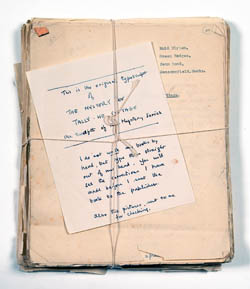 Enid Blyton,
Green Hedges,
Penn Road,
Beaconsfield, Bucks.
This is the original typescript
of
THE MYSTERY OF
TALLY-HO COTTAGE
of the Mystery Series
I do not write my books by
hand, but type them straight
out of my head. You will
see the corrections I have
made before I sent the
book to the publishers.
Also the pictures, sent to me
for checking.